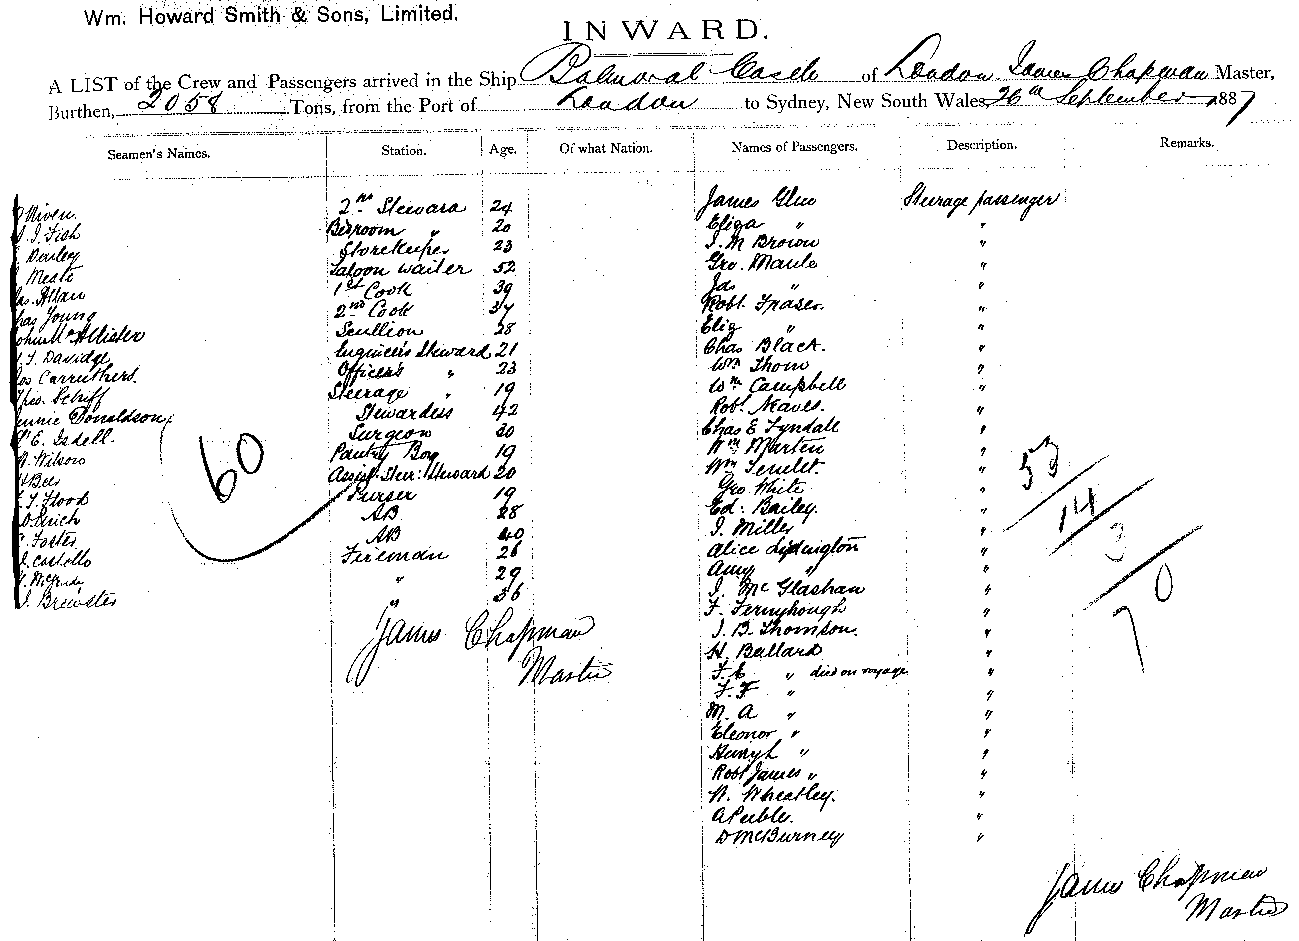 Wm. Howard Smith & Sons, Limited.
INWARD.
A LIST of the Crew and Passengers arrived in the Ship Balmoral Castle of London James Chapman Master,
Burthen, 2058 Tons, from the Port of London to Sydney, New South Wales 26th September 1887
Seamen's Names. Station. Age. Of what Nation. Names of Passengers. Description. Remarks.
Niven 2nd Steward 24 James Glew Steerage passenger
J. Fish Bedroom " 20 Eliza " "
Darley Storekeeper 23 J. M Brown "
Saloon waiter 52 Geo. Maule "
Allan 1st Cook 39 Jas " "
Young 2nd Cook 37 Robt. Fraser. "
McAllister Scullion 28 Eliz " "
T. Davidge Engineer's Steward 21 Chas Black. "
Carruthers. Officer's " 23 Wm Thom "
Schiff Steerage " 19 Wm Campbell "
Donaldson Stewardess 42 Robt. Neaves. "
E. Isdell. Surgeon 30 Chas E Tyndale "
Wilson Pantry Boy 19 Wm Marten "
Assist. Steer: Steward 20 Wm "
Flood Purser 19 Geo White "
AB 28 Ed. Bailey. "
Foster AB 40 J. Miller "
Costello Fireman 26 Alice "
" 29 Amy " "
J. Brewster " 36 J. McGlashan "
60
F. Fernyhough "
J. B. Thomson. "
James Chapman
Master
H. Ballard "
" died on voyage "
F. F " "
M. A " "
Eleonor " "
" "
Robt James " "
W. Wheatley. "
A Peebles. "
D McBurney "
53
14
3
70
James Chapman
Master